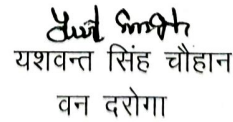 यशवन्त सिंह चौहान
वन दरोगा